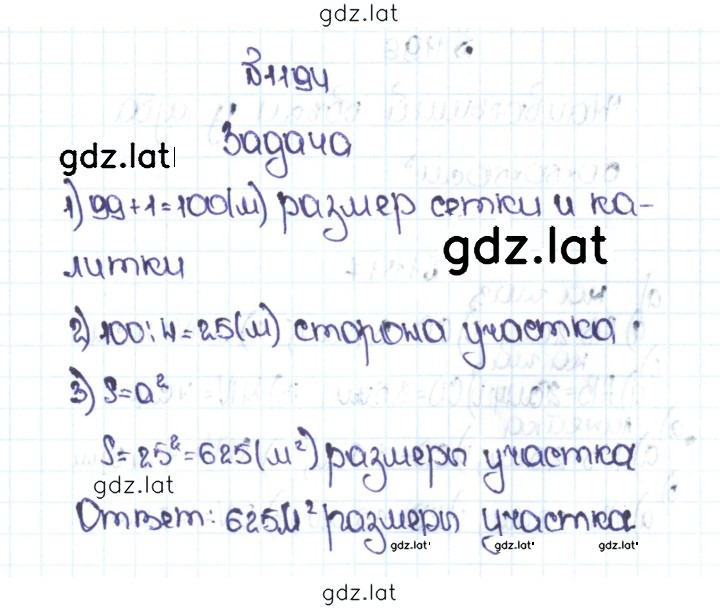 gdz.lat
№1194
Задача
gdz.lat
1) 99+1=100(м) размер сетки и ка-
gdz.lat
литки
2) 100:4=25(м) сторона участка
3) S=a²
S=25²=625(м²) размеры участка
gdz.lat
Ответ: 625м² размеры участка
gdz.lat gdz.lat gdz.lat
gdz.lat